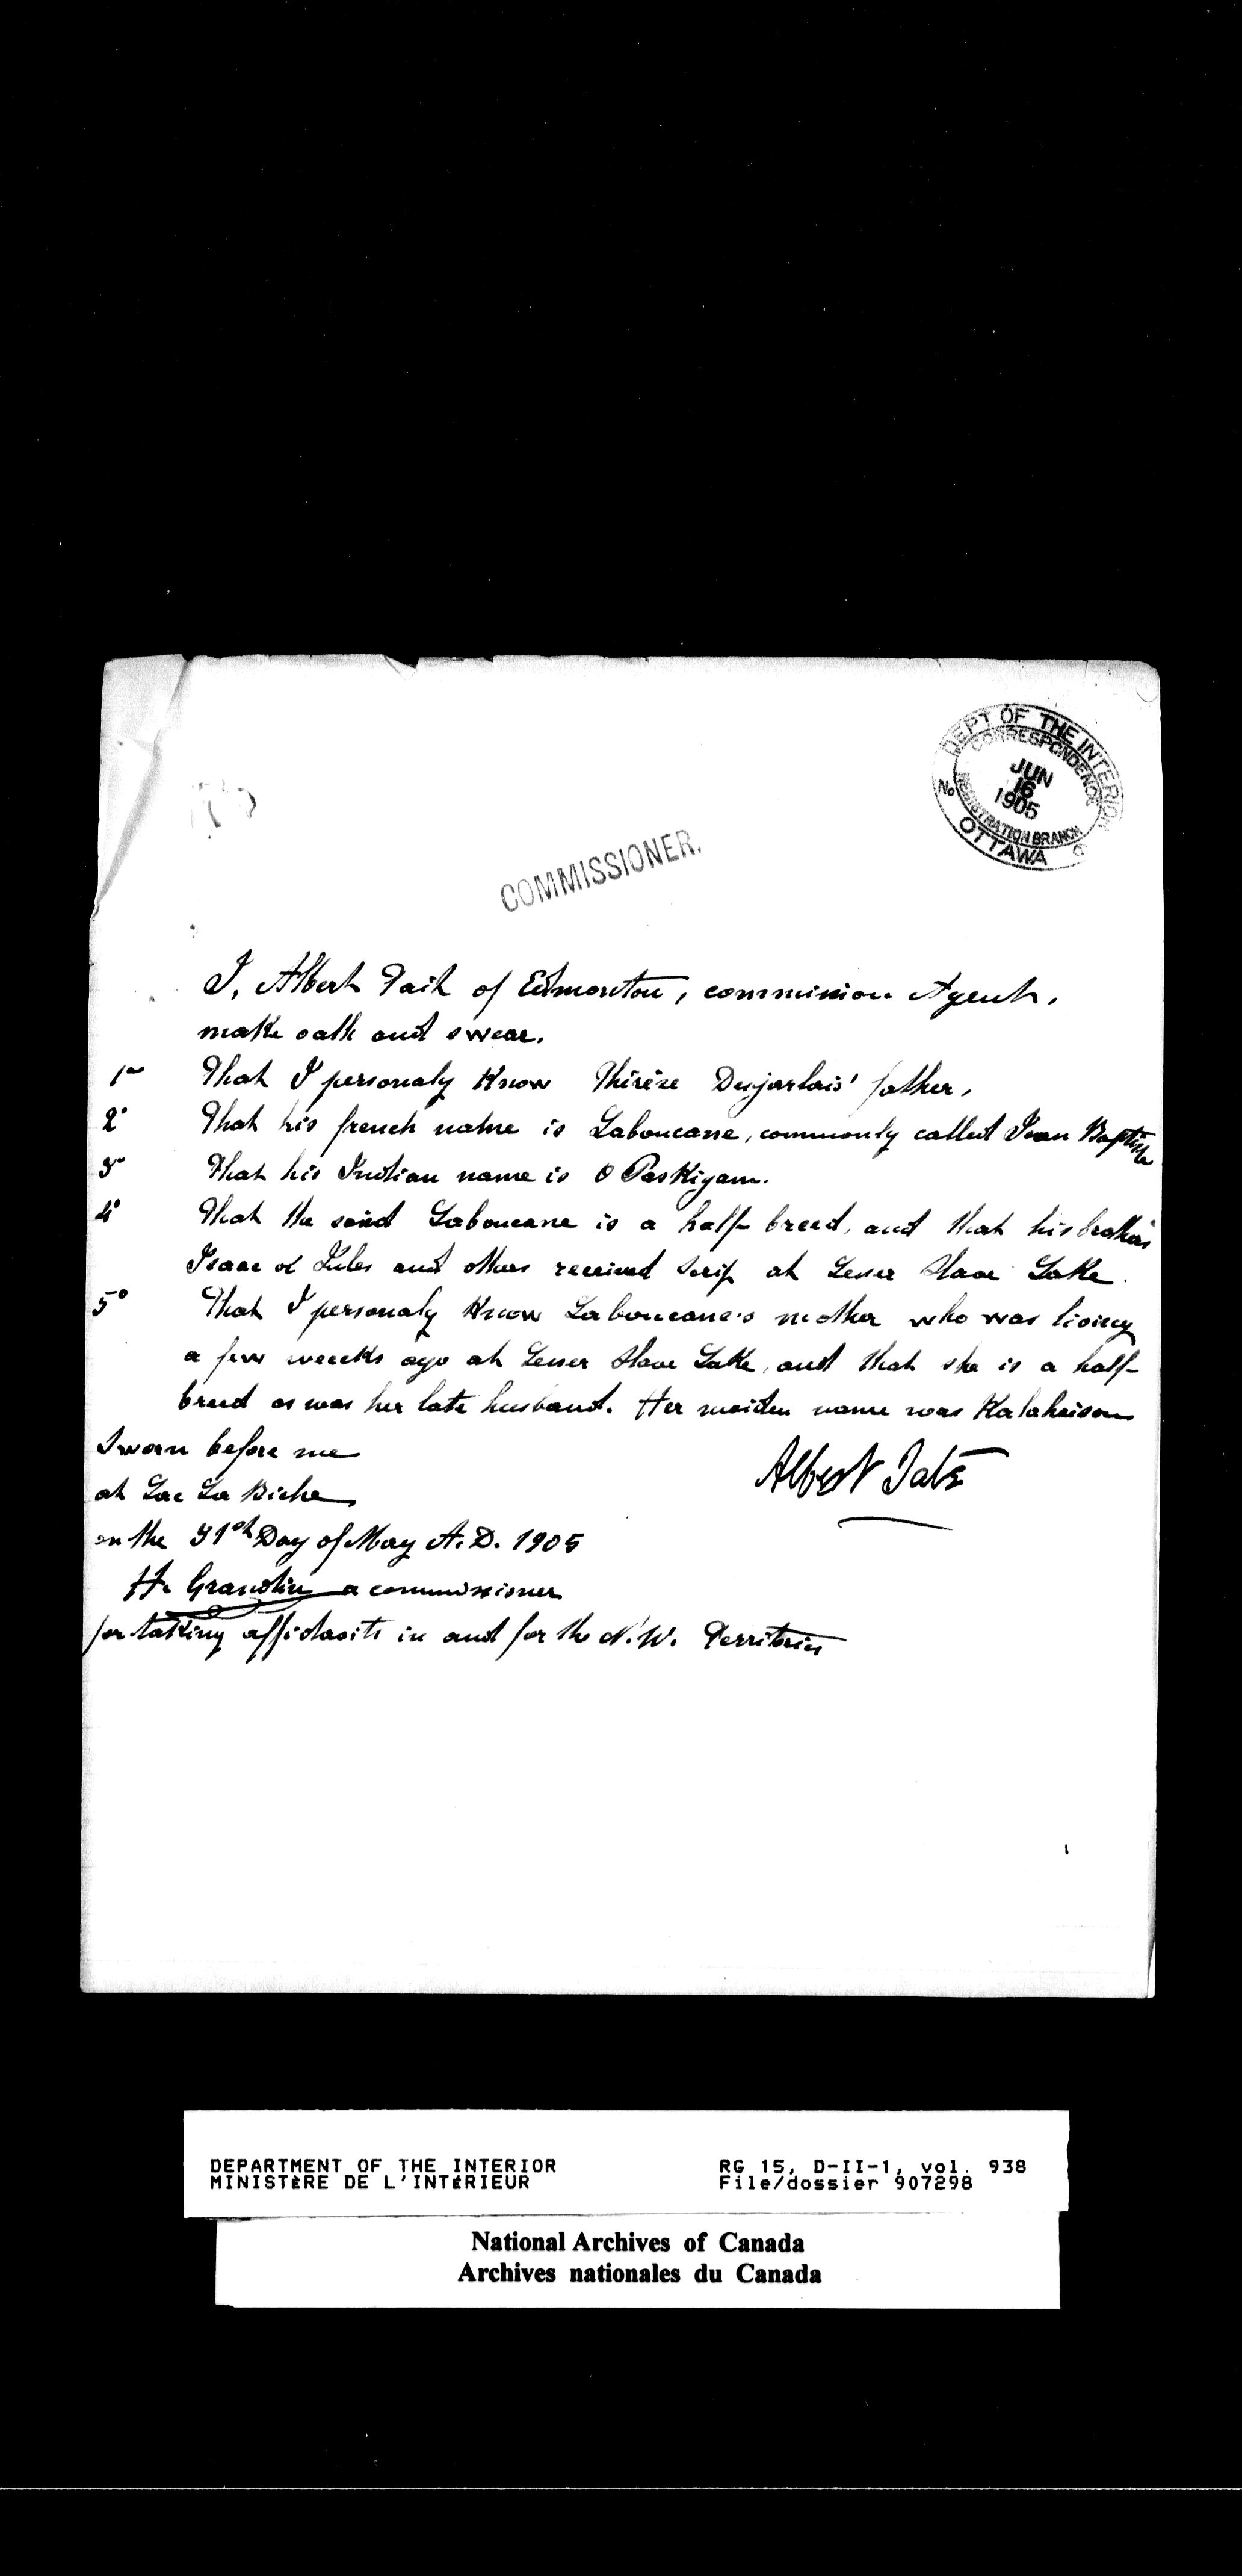 DEPT OF THE INTERIOR
CORRESPONDENCE
JUN
16
1905
REGISTRATION BRANCH
No
OTTAWA
COMMISSIONER.
I, Albert Tait of Edmonton, commission Agent,
make oath and swear.
1° That I personaly Know Thérèse Desjarlais' father,
2° That his french name is Laboucane, commonly called Jean Baptiste
3° That his Indian name is O Paskiyam.
4° That the said Laboucane is a half-breed, and that his brothers
Isaac & Jules and others received scrip at Lesser Slave Lake.
5° That I personaly Know Laboucane's mother who was living
a few weeks ago at Lesser Slave Lake, and that she is a half-
breed as was her late husband. Her maiden name was Kalahaison
Sworn before me
Albert Tate
at Lac La Biche
on the 31st Day of May A.D. 1905
H. Grandin a commissioner
for taking affidavits in and for the N.W. Territories
DEPARTMENT OF THE INTERIOR RG 15, D-II-1, vol. 938
MINISTÈRE DE L'INTÉRIEUR File/dossier 907298
National Archives of Canada
Archives nationales du Canada